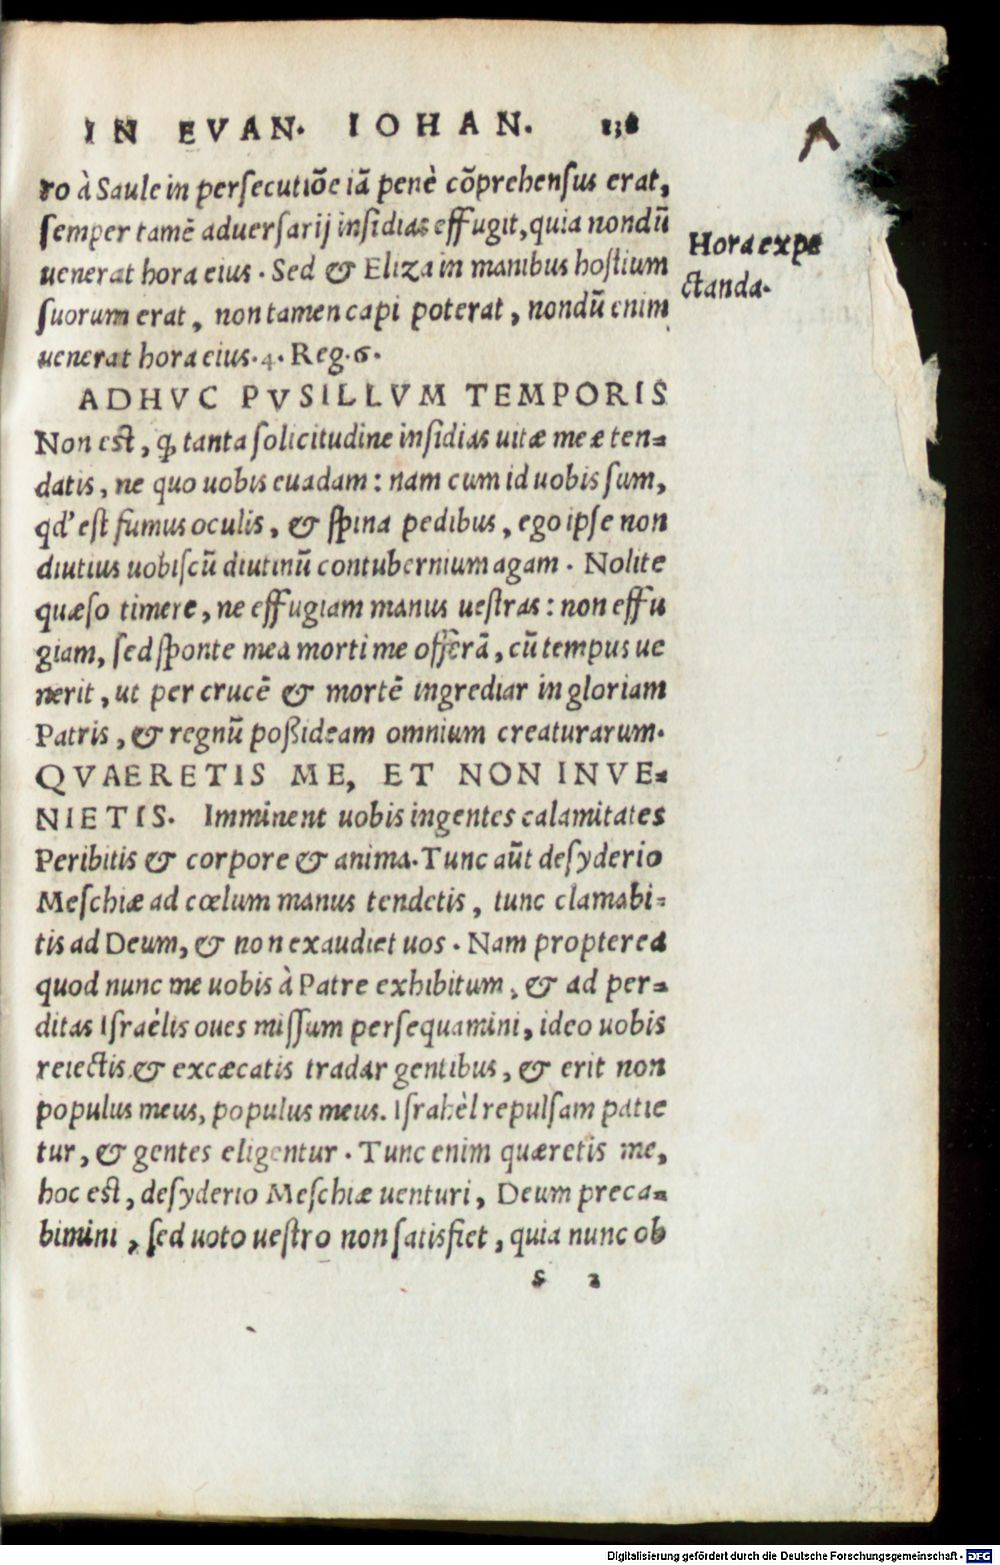 IN EVAN. IOHAN. 138
ro à Saule in persecutiõe iã penè cõprehensus erat,
semper tamẽ aduersarij insidias effugit, quia nondũ
uenerat hora eius. Sed & Eliza in manibus hostium
suorum erat, non tamen capi poterat, nondũ enim
uenerat hora eius. 4. Reg. 6.
Hora expe
ctanda.
ADHVC PVSILLVM TEMPORIS
Non est, ꝙ tanta solicitudine insidias uitæ meæ ten-
datis, ne quo uobis euadam: nam cum id uobis sum,
qd' est fumus oculis, & spina pedibus, ego ipse non
diutius uobiscũ diutinũ contubernium agam. Nolite
quæso timere, ne effugiam manus uestras: non effu
giam, sed sponte mea morti me offerã, cũ tempus ue
nerit, ut per crucẽ & mortẽ ingrediar in gloriam
Patris, & regnũ possideam omnium creaturarum.
QVAERETIS ME, ET NON INVE-
NIETIS. Imminent uobis ingentes calamitates
Peribitis & corpore & anima. Tunc aũt desyderio
Meschiæ ad cœlum manus tendetis, tunc clamabi-
tis ad Deum, & non exaudiet uos. Nam propterea
quod nunc me uobis à Patre exhibitum, & ad per-
ditas Israèlis oues missum persequamini, ideo uobis
reiectis & excæcatis tradar gentibus, & erit non
populus meus, populus meus. Israhèl repulsam patie
tur, & gentes eligentur. Tunc enim quæretis me,
hoc est, desyderio Meschiæ uenturi, Deum preca-
bimini, sed uoto uestro non satisfiet, quia nunc ob
S 2
Digitalisierung gefördert durch die Deutsche Forschungsgemeinschaft - DFG